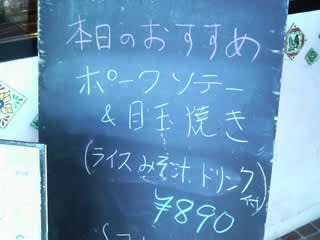 本日のおすすめ
ポークソテー
&目玉焼き
(ライス みそ汁 ドリンク付)
¥890